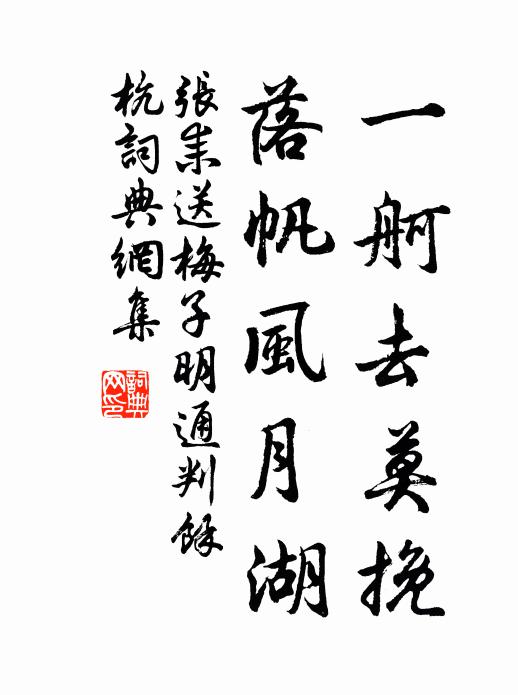 一舸去莫挽
落帆風月湖
張耒送梅子明通判餘
杭詞典網集
詞典網印